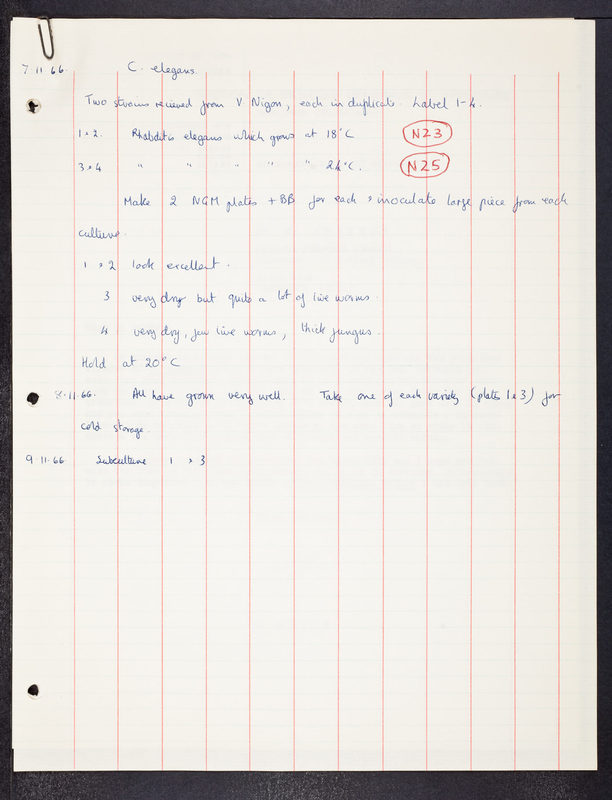 7.11.66. C. elegans.
Two strains recieved from V Nigon, each in duplicate. Label 1-4.
1 + 2. Rhabditis elegans which grows at 18°C N23
3 + 4 " " " " " 24°C. N25
Make 2 NGM plates + BB for each + inoculate large piece from each
culture.
1 + 2 look excellent.
3 very dry but quite a lot of live worms.
4 very dry, few live worms, thick fungus.
Hold at 20°C
8.11.66. All have grown very well. Take one of each variety (plates 1 & 3) for
cold storage.
9.11.66 Subculture 1 + 3